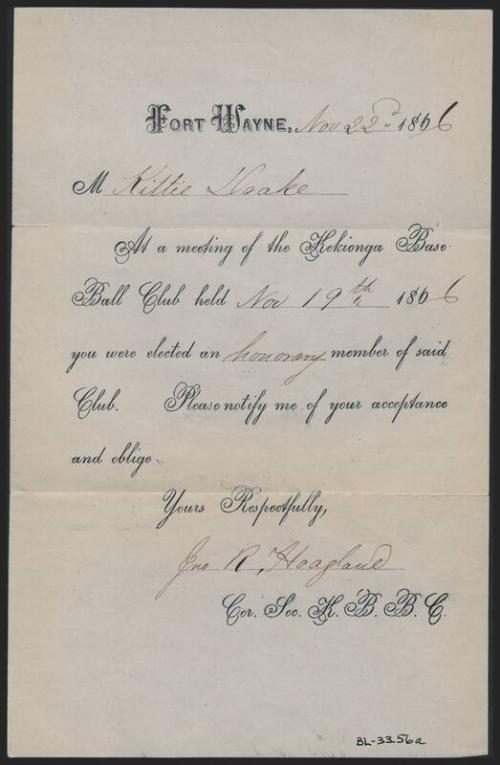 Fort Wayne, Nov 22d 1866
M Kittie Drake
At a meeting of the Kekionga Base
Ball Club held Nov 19th 1866
you were elected an honorary member of said
Club. Please notify me of your acceptance
and oblige.
Yours Respectfully,
Jno R. Hoagland
Cor. Sec. K. B. B. C.
BL-33.56a